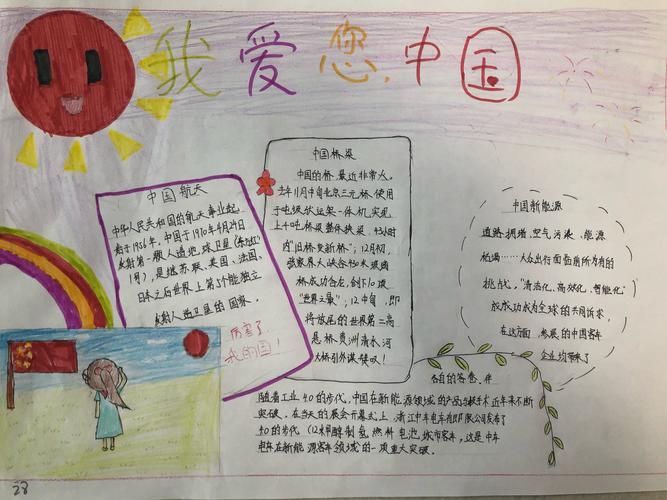 我爱您,中国
中国航天
中华人民共和国的航天事业起
始于1956年,中国于1970年4月24日
发射第一颗人造地球卫星(东方红
1号),是继苏联、美国、法国、
日本之后世界上第5个能独立
发射人造卫星的国家。
厉害了
我的国!
中国桥梁
中国的桥,最近非常火。
去年11月中旬北京三元桥,使用
千吨级驮运架一体机,实现
上千吨桥梁整体换梁,43小时
内"旧桥变新桥";12月初,
张家界大峡谷430米玻璃
桥成功合龙,创下10项
"世界之最";12中旬,即
将放尾的世界第二高
悬桥贵州清水河
大桥引外媒惊叹!
中国新能源
道路拥堵、空气污染、能源
枯竭……大众出行面临前所有的
挑战,"清洁化、高效化、智能化"
放成功成为全球的共同诉求,
在这方面,参展的中国客车
企业均带来了
各自的答卷。伴
随着工业4.0的步伐,中国在新能源领域的产品与技术近年来不断
突破。在当天的展会开幕式上,浙江中车电车有限公司发布了
4.0的步代(12米甲醇制氢燃料电池城市客车,这是中车
电车在新能源客车领域的一项重大突破。
28